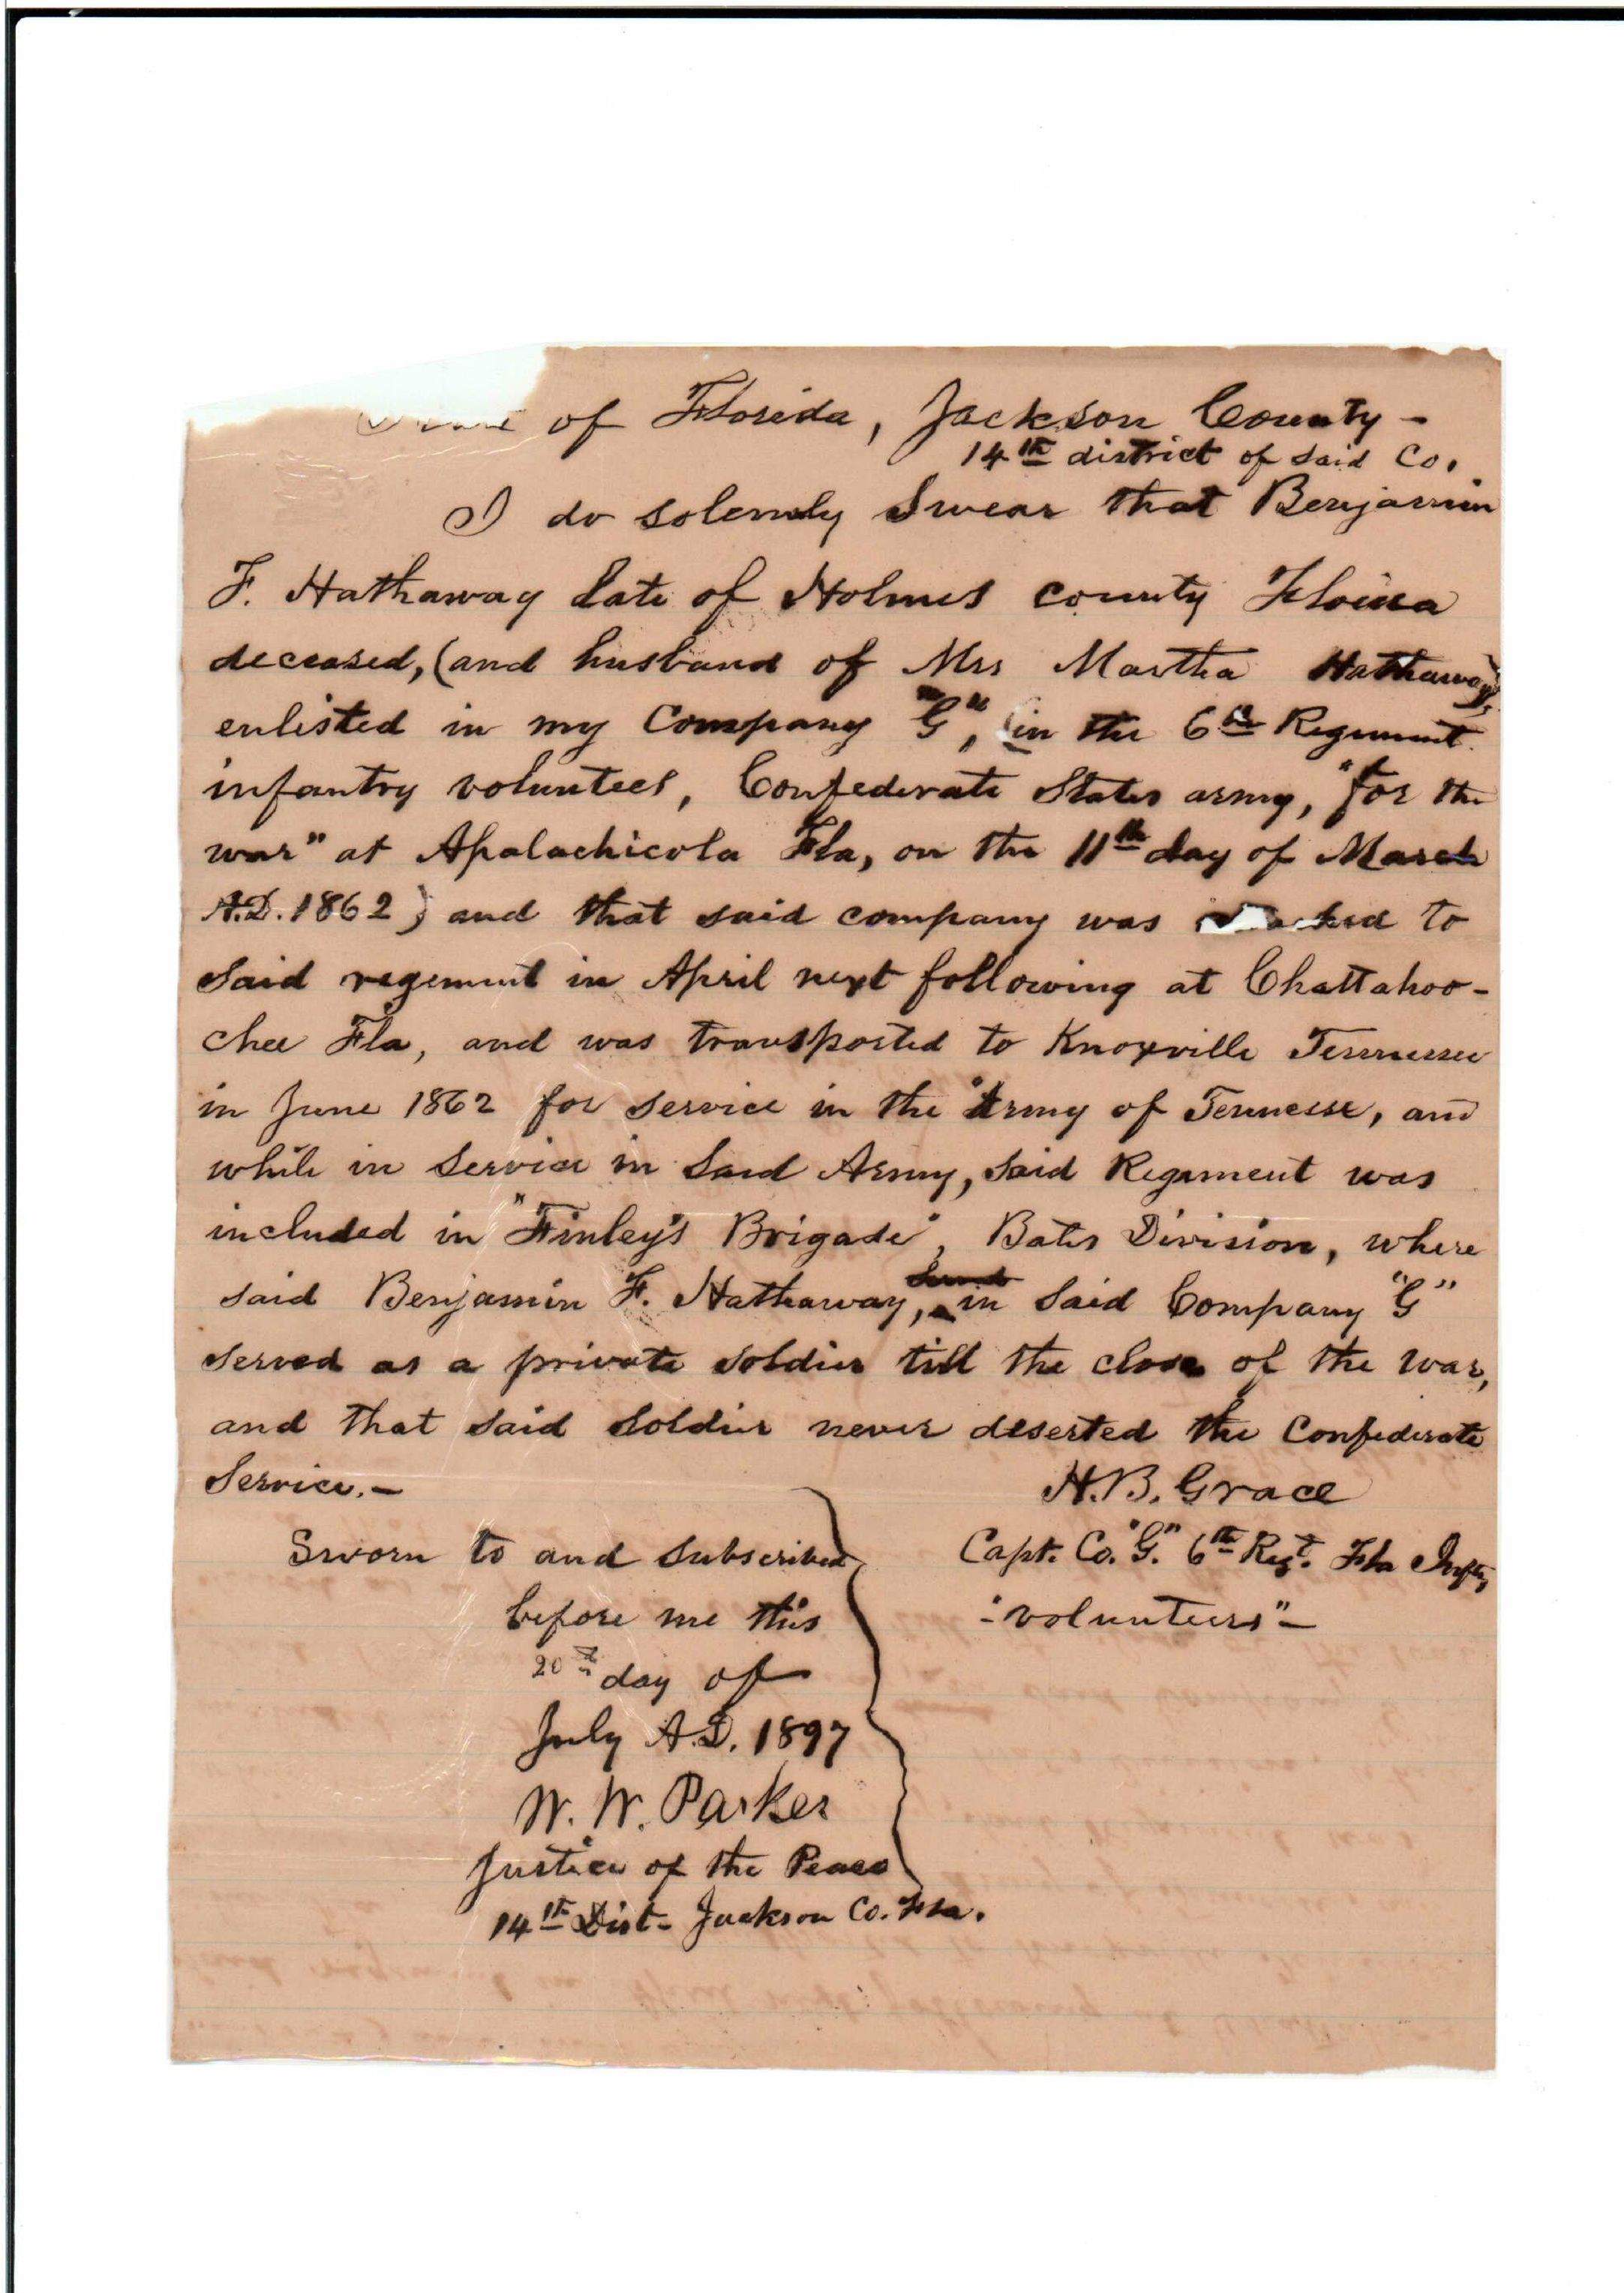 of Florida, Jackson County -
14th district of said Co.
I do solemnly Swear that Benjamin
F. Hathaway late of Holmes county
deceased, (and husband of Mrs Martha Hathaway)
enlisted in my Company "G", (in the 6th Regiment
infantry voluntees, Confederate States army, "for the
war" at Apalachicola Fla, on the 11th day of March
A.D. 1862) and that said company was to
said regement in April next following at Chattahoo-
chee Fla, and was transported to Knoxville Tennessee
in June 1862 for service in the Army of Tennesse, and
while in service in said Army, said Regement was
included in "Finley's Brigade", Bates Division, where
said Benjamin F. Hathaway, in said Company "G"
served as a private soldier till the close of the war,
and that said soldier never deserted the Confederate
Service. -
H.B. Grace
Capt. Co. "G." 6th Regt. Fla Infty
"volunteers" -
Sworn to and subscribed
before me this
20th day of
July A.D. 1897
W. W. Parker
Justice of the Peace
14th Dist - Jackson Co. Fla.